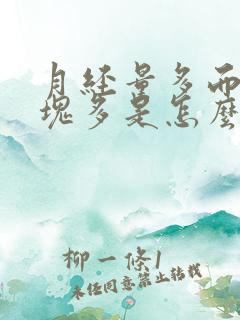 月經量多而
塊多是怎麼
柳一條1
未任同意禁止轉載